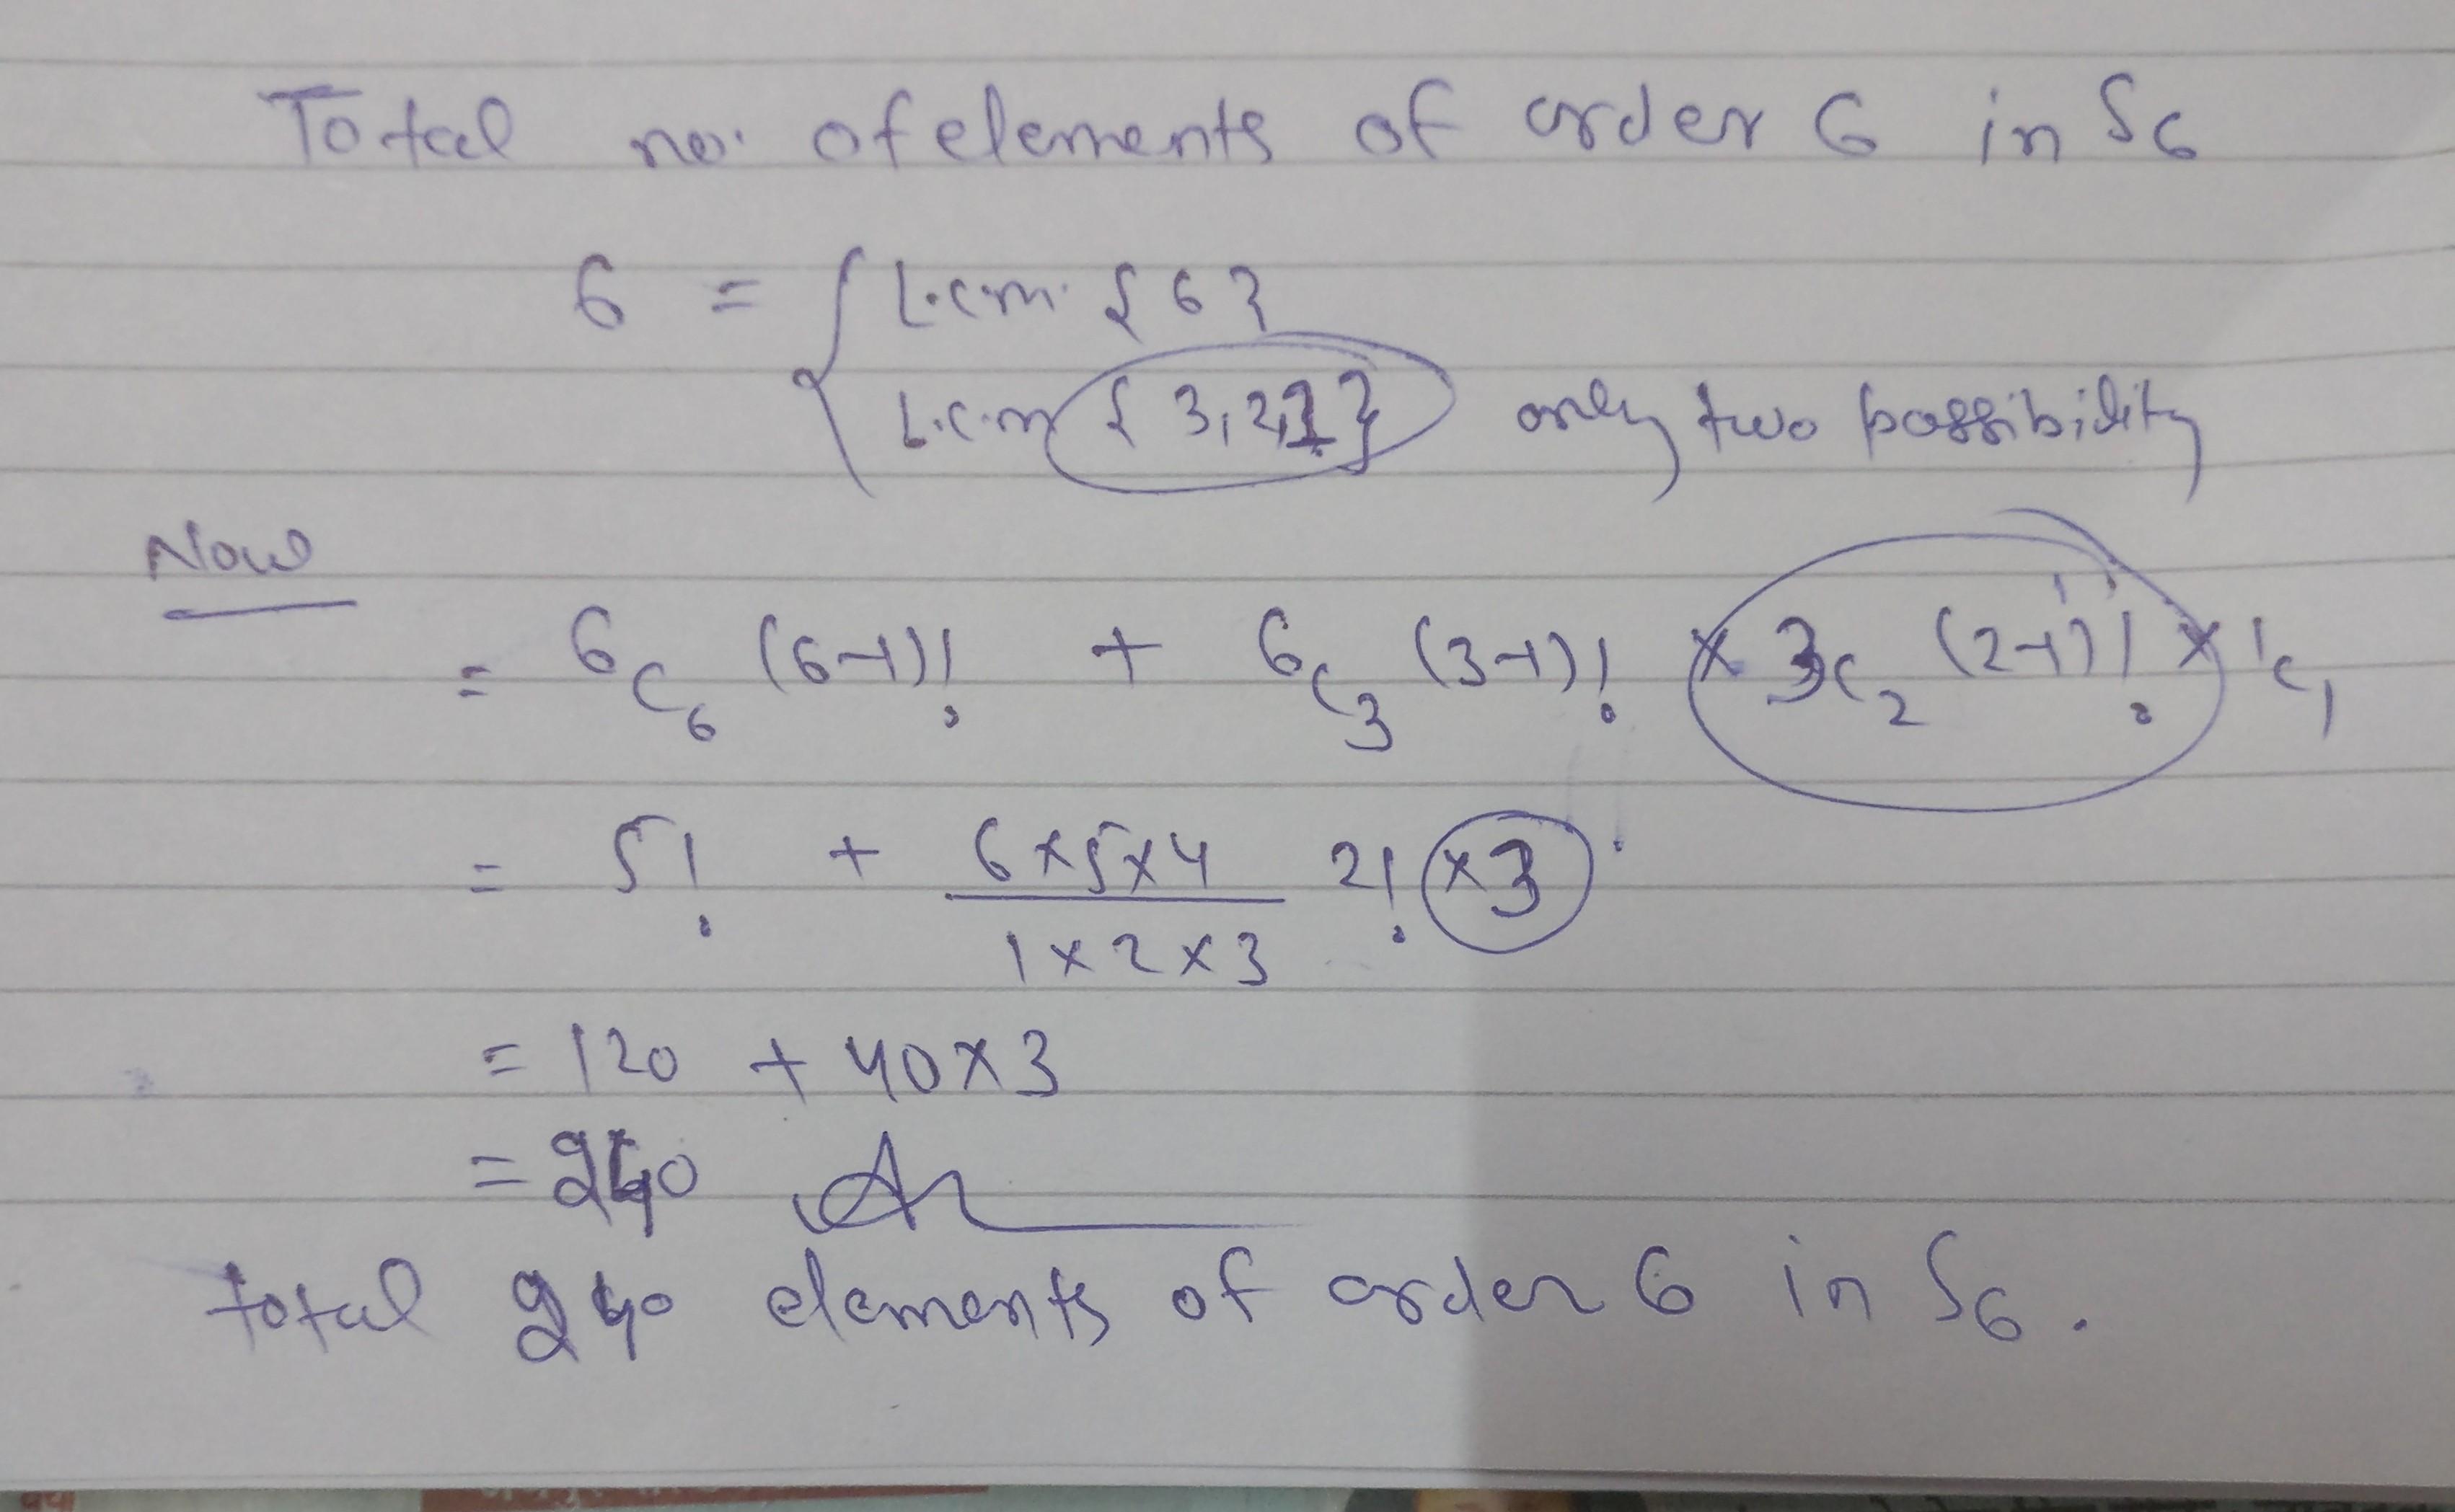 Total no. of elements of order 6 in S6
6 = { L.c.m. {6}
L.c.m {3,2,1} only two possibility
Now
= 6C6 (6-1)! + 6C3 (3-1)! × 3C2 (2-1)! × 1C1
= 5! + 6×5×4 / 1×2×3 2! ×3
= 120 + 40×3
= 240
total 240 elements of order 6 in S6.